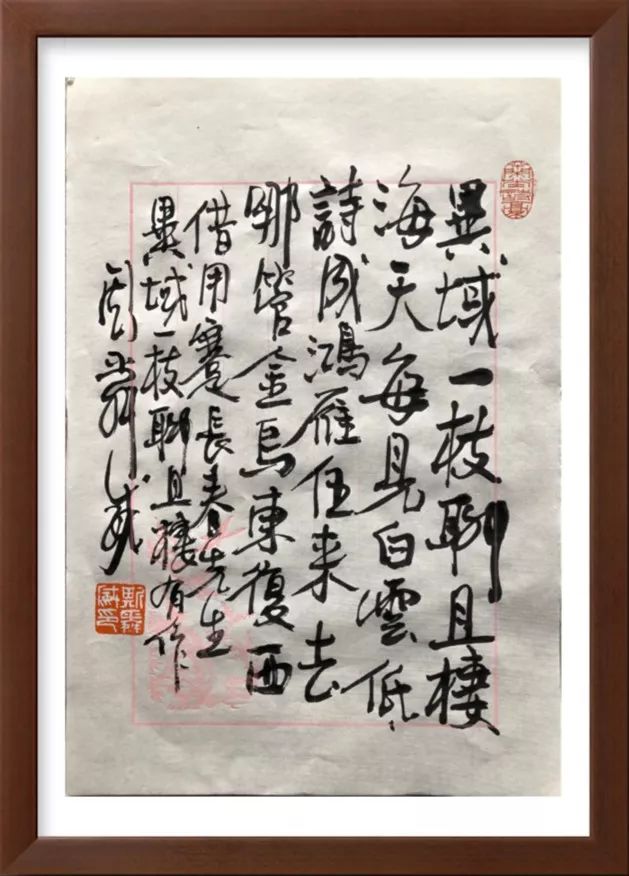 異域一枝聊且棲
海天每見白雲低
詩成鴻雁任來去
哪管金烏東復西
借用蹇長春先生
異域一枝聊且棲有作